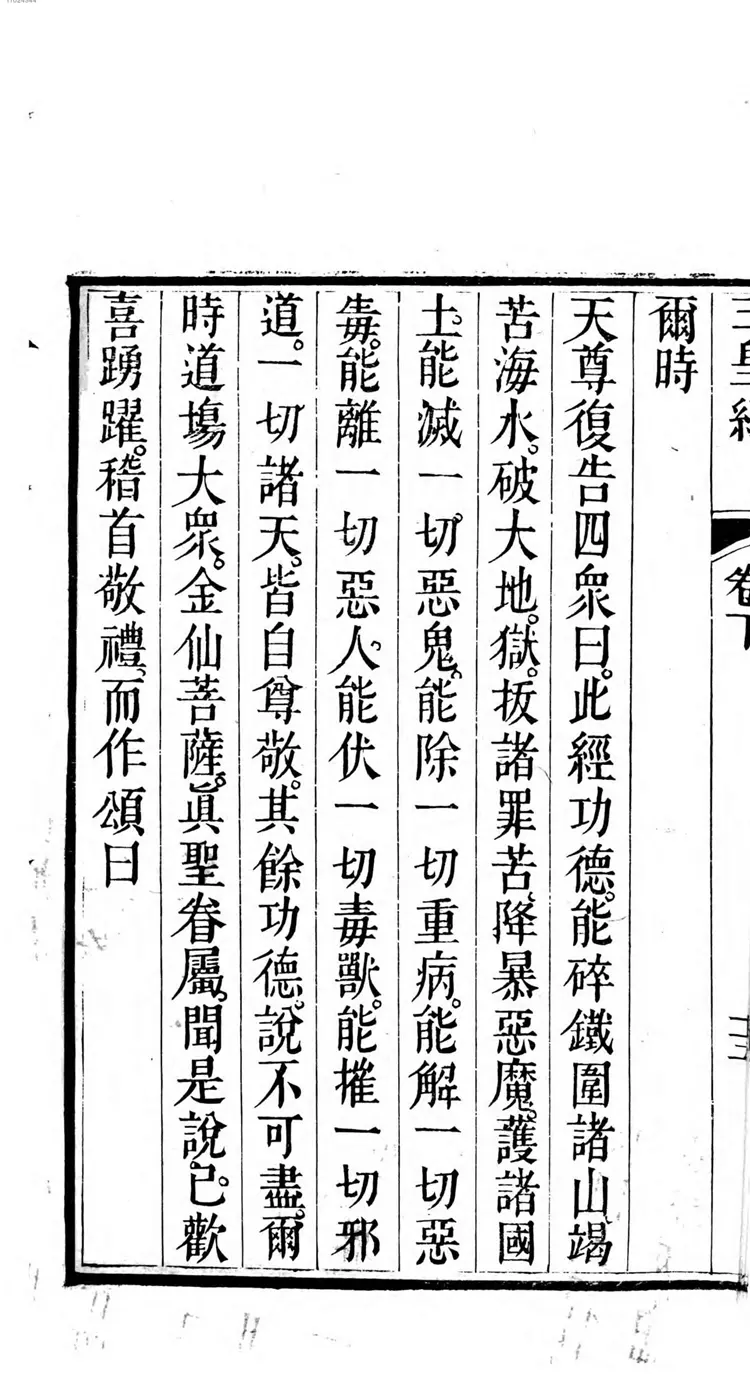 玉皇經 卷下
爾時
天尊復告四衆曰。此經功德。能碎鐵圍諸山、竭
苦海水。破大地。獄。抜諸罪苦、降暴惡魔。護諸國
土。能滅一切惡鬼。能除一切重病。能解一切惡
毒。能離一切惡人。能伏一切毒獸。能摧一切邪
道。一切諸天。皆自尊敬。其餘功德。說不可盡。爾
時道塲大衆。金仙菩薩。眞聖眷屬。聞是說。已。歡
喜踴躍。稽首敬禮。而作頌曰